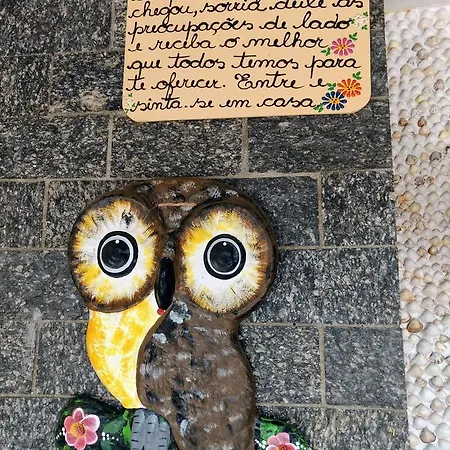 chegou, sorria, deixe as
preocupações de lado
e receba o melhor
que todos temos para
te oferecer. Entre e
sinta-se em casa